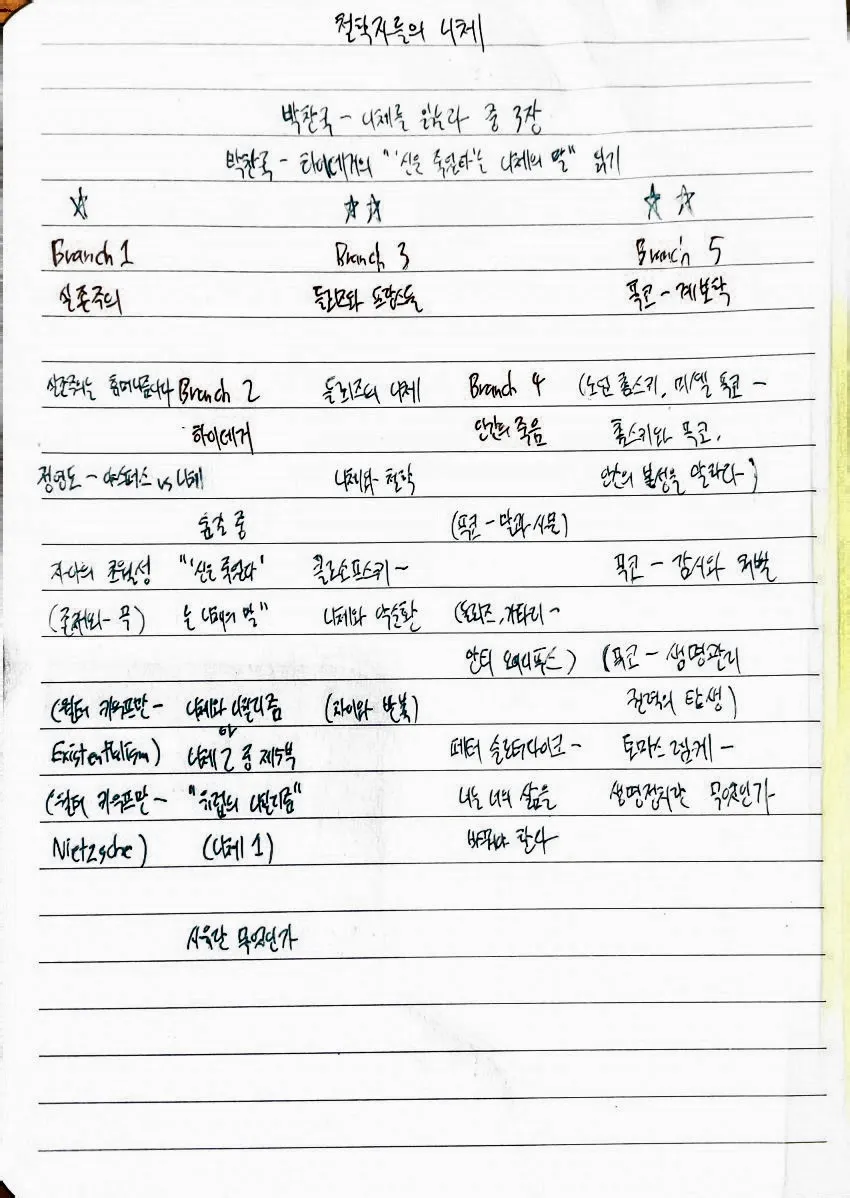 철학자들의 니체
박찬국 - 니체를 읽는다 중 3장
박찬국 - 하이데거의 "'신은 죽었다'는 니체의 말" 읽기
☆ ☆☆ ☆☆
Branch 1 Branch 3 Branch 5
실존주의 들뢰즈와 프랑스놈들 푸코 - 계보학
실존주의는 휴머니즘이다 Branch 2 들뢰즈의 니체 Branch 4 (노엄 촘스키, 미셸 푸코 -
하이데거 인간의 죽음 촘스키와 푸코,
정영도 - 야스퍼스 vs 니체 니체와 철학 인간의 본성을 말하다)
숲길 중 (푸코 - 말과 사물)
자아의 초월성 "'신은 죽었다' 클로소프스키 - 푸코 - 감시와 처벌
(존재와 무) 는 니체의 말" 니체와 악순환 (들뢰즈, 가타리 -
안티 오이디푸스) (푸코 - 생명관리
(월터 카우프만 - 니체와 니힐리즘 (차이와 반복) 권력의 탄생)
Existentialism) 니체 2 중 제5부 페터 슬로터다이크 - 토마스 렘케 -
(월터 카우프만 - "유럽의 니힐리즘" 너는 너의 삶을 생명정치란 무엇인가
Nietzsche) (니체 1) 바꿔야 한다
사유란 무엇인가